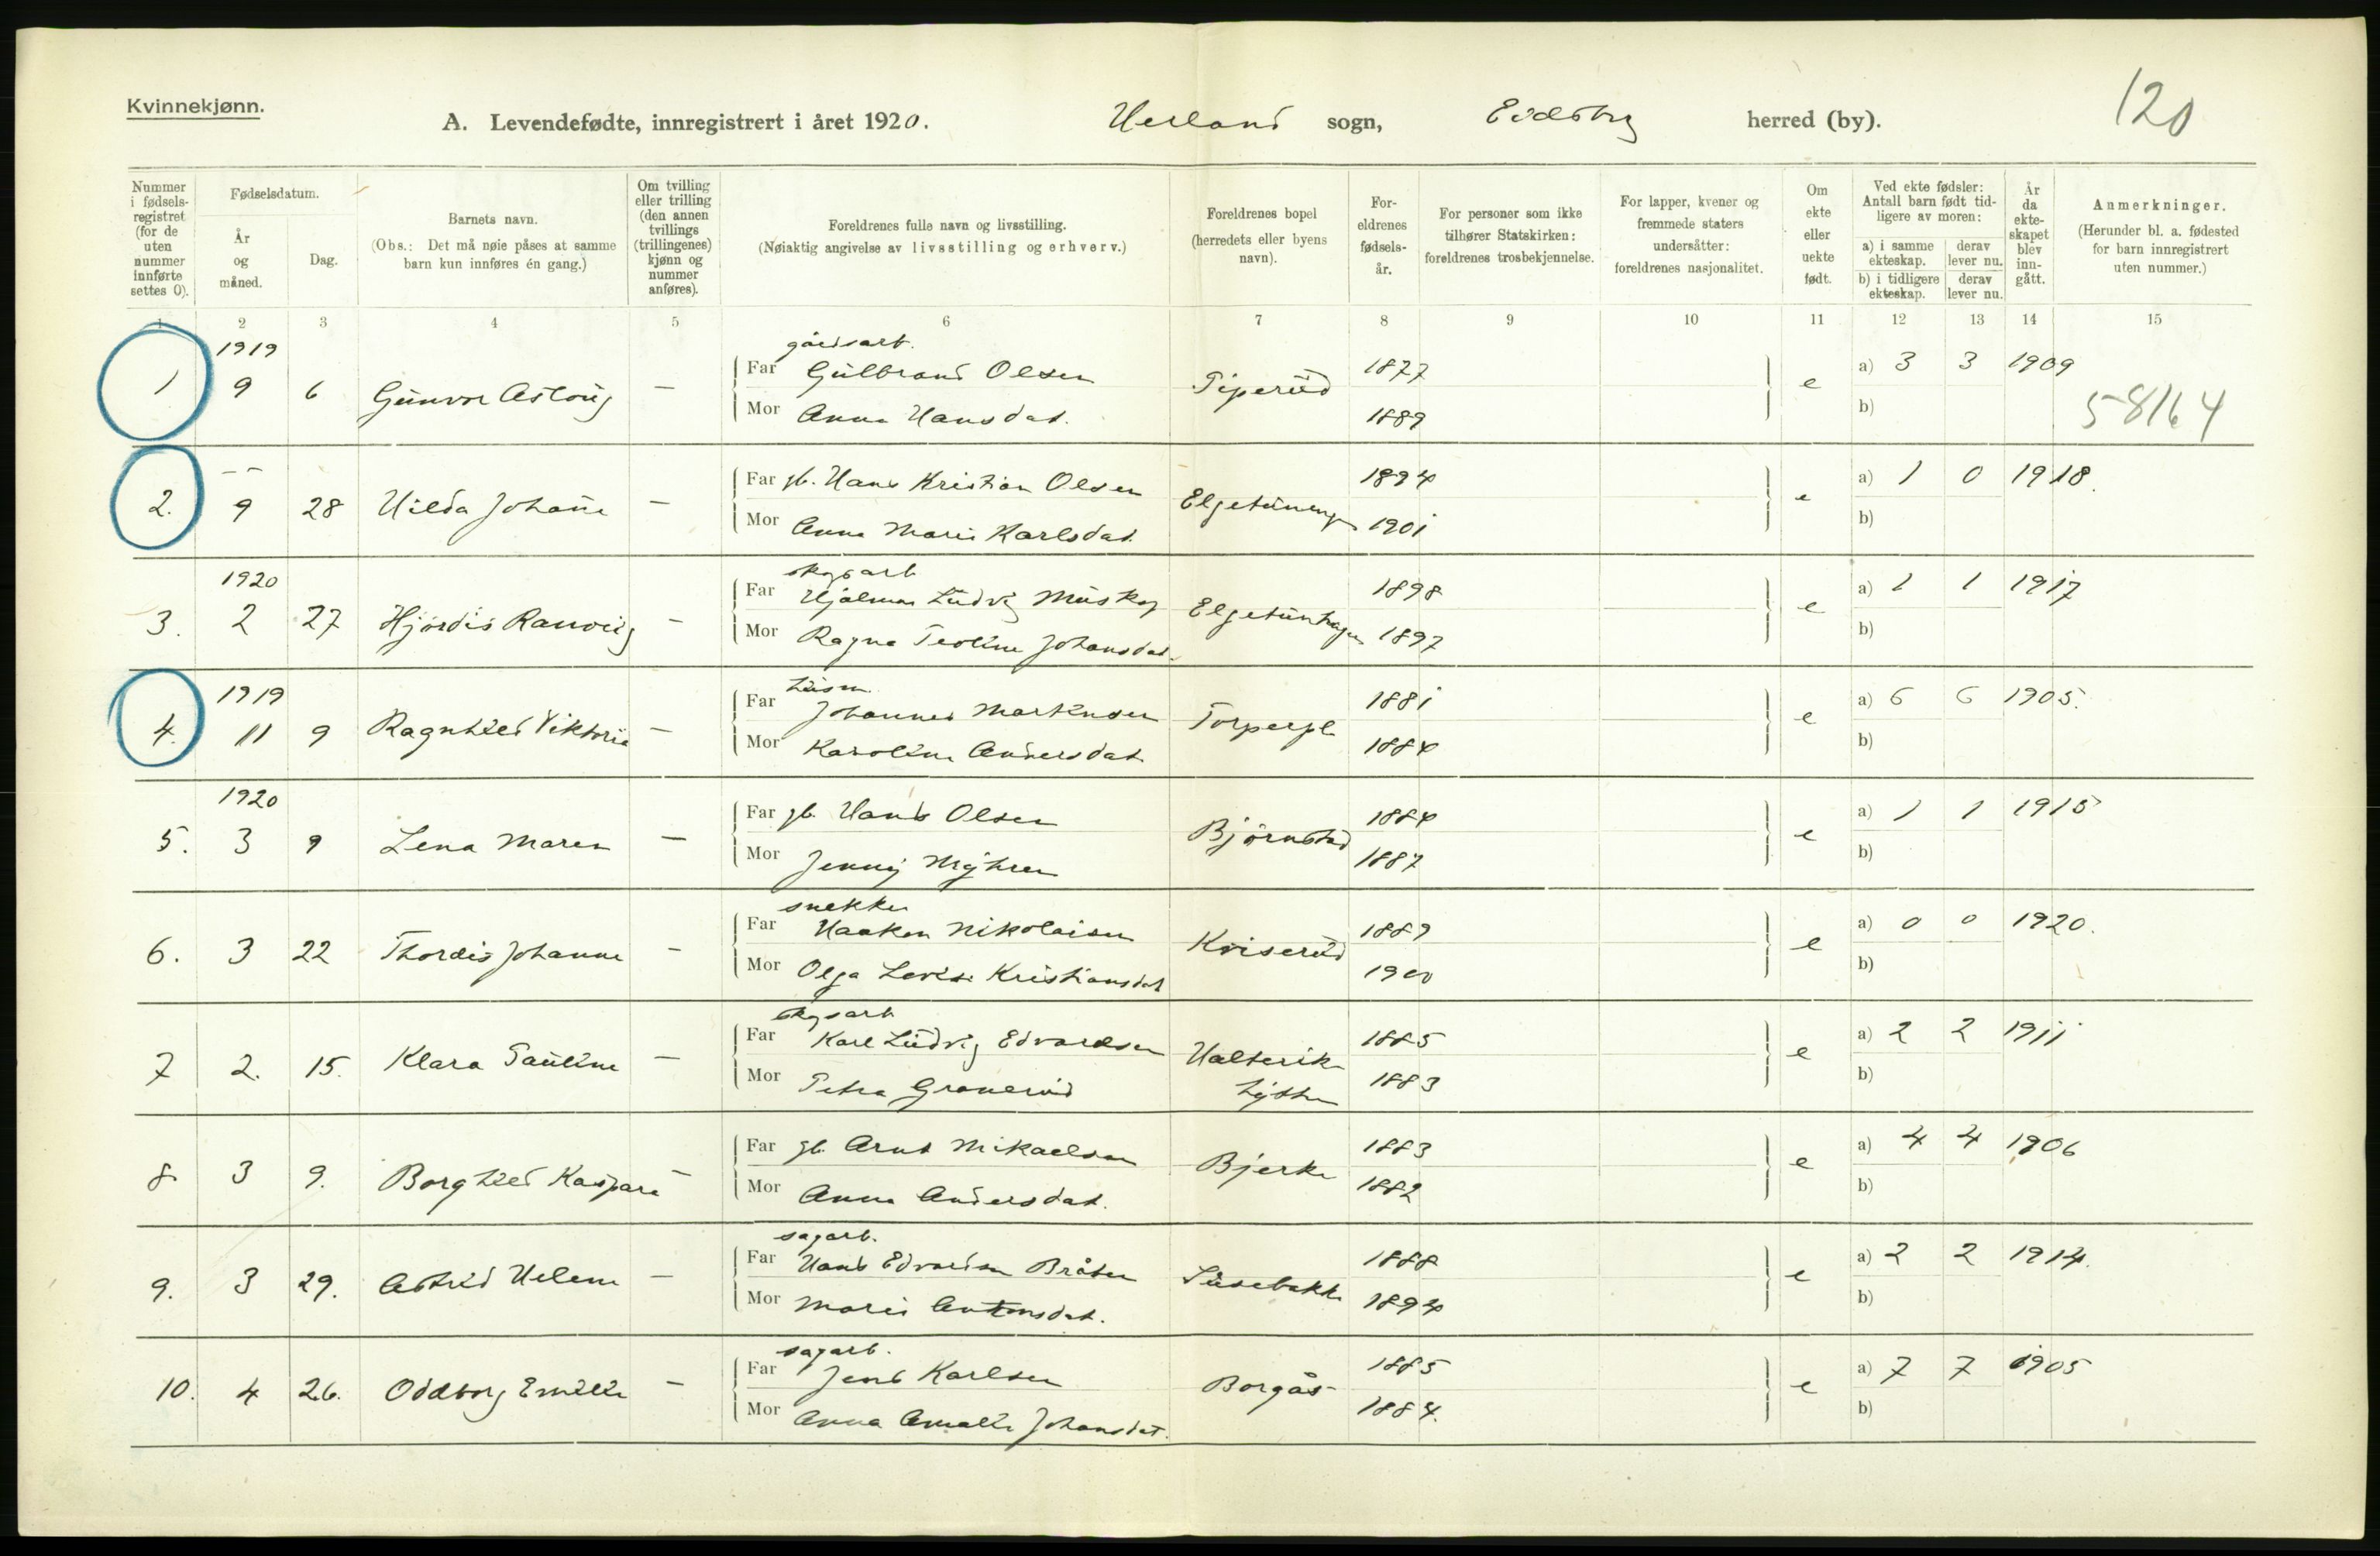 Kvinnekjønn.
A. Levendefødte, innregistrert i året 1920. Herland sogn, Eidsberg herred (by).
120
Nummer i fødsels-registret (for de uten nummer innførte settes 0).
Fødselsdatum.
År og måned.
Dag.
Barnets navn.
(Obs.: Det må nøie påses at samme barn kun innføres én gang.)
Om tvilling eller trilling (den annen tvillings (trillingenes) kjønn og nummer anføres).
Foreldrenes fulle navn og livsstilling.
(Nøiaktig angivelse av livsstilling og erhverv.)
Foreldrenes bopel (herredets eller byens navn).
For-eldrenes fødsels-år.
For personer som ikke tilhører Statskirken: foreldrenes trosbekjennelse.
For lapper, kvener og fremmede staters undersåtter: foreldrenes nasjonalitet.
Om ekte eller uekte født.
Ved ekte fødsler: Antall barn født tid-ligere av moren:
a) i samme ekteskap.
derav lever nu.
b) i tidligere ekteskap.
derav lever nu.
År da ekte-skapet blev inn-gått.
Anmerkninger.
(Herunder bl. a. fødested for barn innregistrert uten nummer.)
1 2 3 4 5 6 7 8 9 10 11 12 13 14 15
1919 gårdsarb.
1 9 6 Gunvor Aslaug — Far Gulbrand Olsen Piperud 1877 e a) 3 3 1909
Mor Anna Hansdat. 1889 b)
58164
2. – – 9 28 Hilda Johanne — Far gb. Hans Kristian Olsen 1894 e a) 1 0 1918.
Mor Anna Marie Karlsdat. 1901 b)
1920 skogsarb
3. 2 27 Hjørdis Ranveig — Far Hjalmar Ludvig Muskop Elgetunhagen 1898 e a) 1 1 1917
Mor Ragna Teoline Johansdat. 1897 b)
1919 husm.
4. 11 9 Ragnhild Viktoria — Far Johannes Martinsen Torperpl. 1881 e a) 6 6 1905.
Mor Karoline Andersdat. 1884 b)
1920
5. 3 9 Lena Maren — Far gb. Hans Olsen Bjørnstad 1884 e a) 1 1 1915
Mor Jenny Myhren 1887 b)
snekker
6. 3 22 Thordis Johanne — Far Haakon Nikolaisen Kviserud 1889 e a) 0 0 1920.
Mor Olga Lovise Kristiansdat 1900 b)
skogsarb
7 2. 15. Klara Pauline — Far Karl Ludvig Edvardsen 1885 e a) 2 2 1911
Mor Petra Granerud 1883 b)
8 3 9. Borghild Kaspara — Far gb. Arnt Mikaelsen Bjerke 1883 e a) 4 4 1906
Mor Anna Andersdat. 1882 b)
sagarb.
9. 3 29. Astrid Helene — Far Hans Edvardsen Bråten Susebakke 1888 e a) 2 2 1914.
Mor Marie Antonsdat. 1894 b)
sagarb.
10. 4 26. Oddborg Emilie — Far Jens Karlsen Borgås 1885 e a) 7 7 1905
Mor Anna Amalie Johansdat. 1884. b)